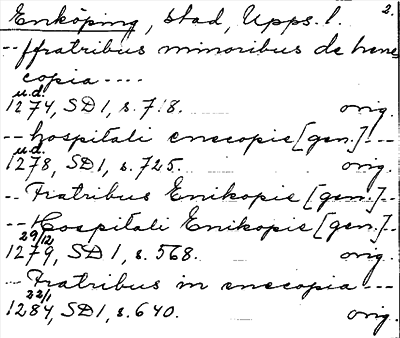 Enköping, stad, Upps. l. 2.
-- ffratribus minoribus de hene
copia ----
u.d.
1274, SD 1, s. 718. orig.
-- hospitali enecopie [gen.] ---
u.d.
1278, SD 1, s. 725. orig.
-- Fratribus Enikopie [gen.] --
-- Hospitali Enikopie [gen.] --
29/12
1279, SD 1, s. 568. orig.
-- Fratribus in enecopia ---
22/1
1284, SD 1, s. 640. orig.